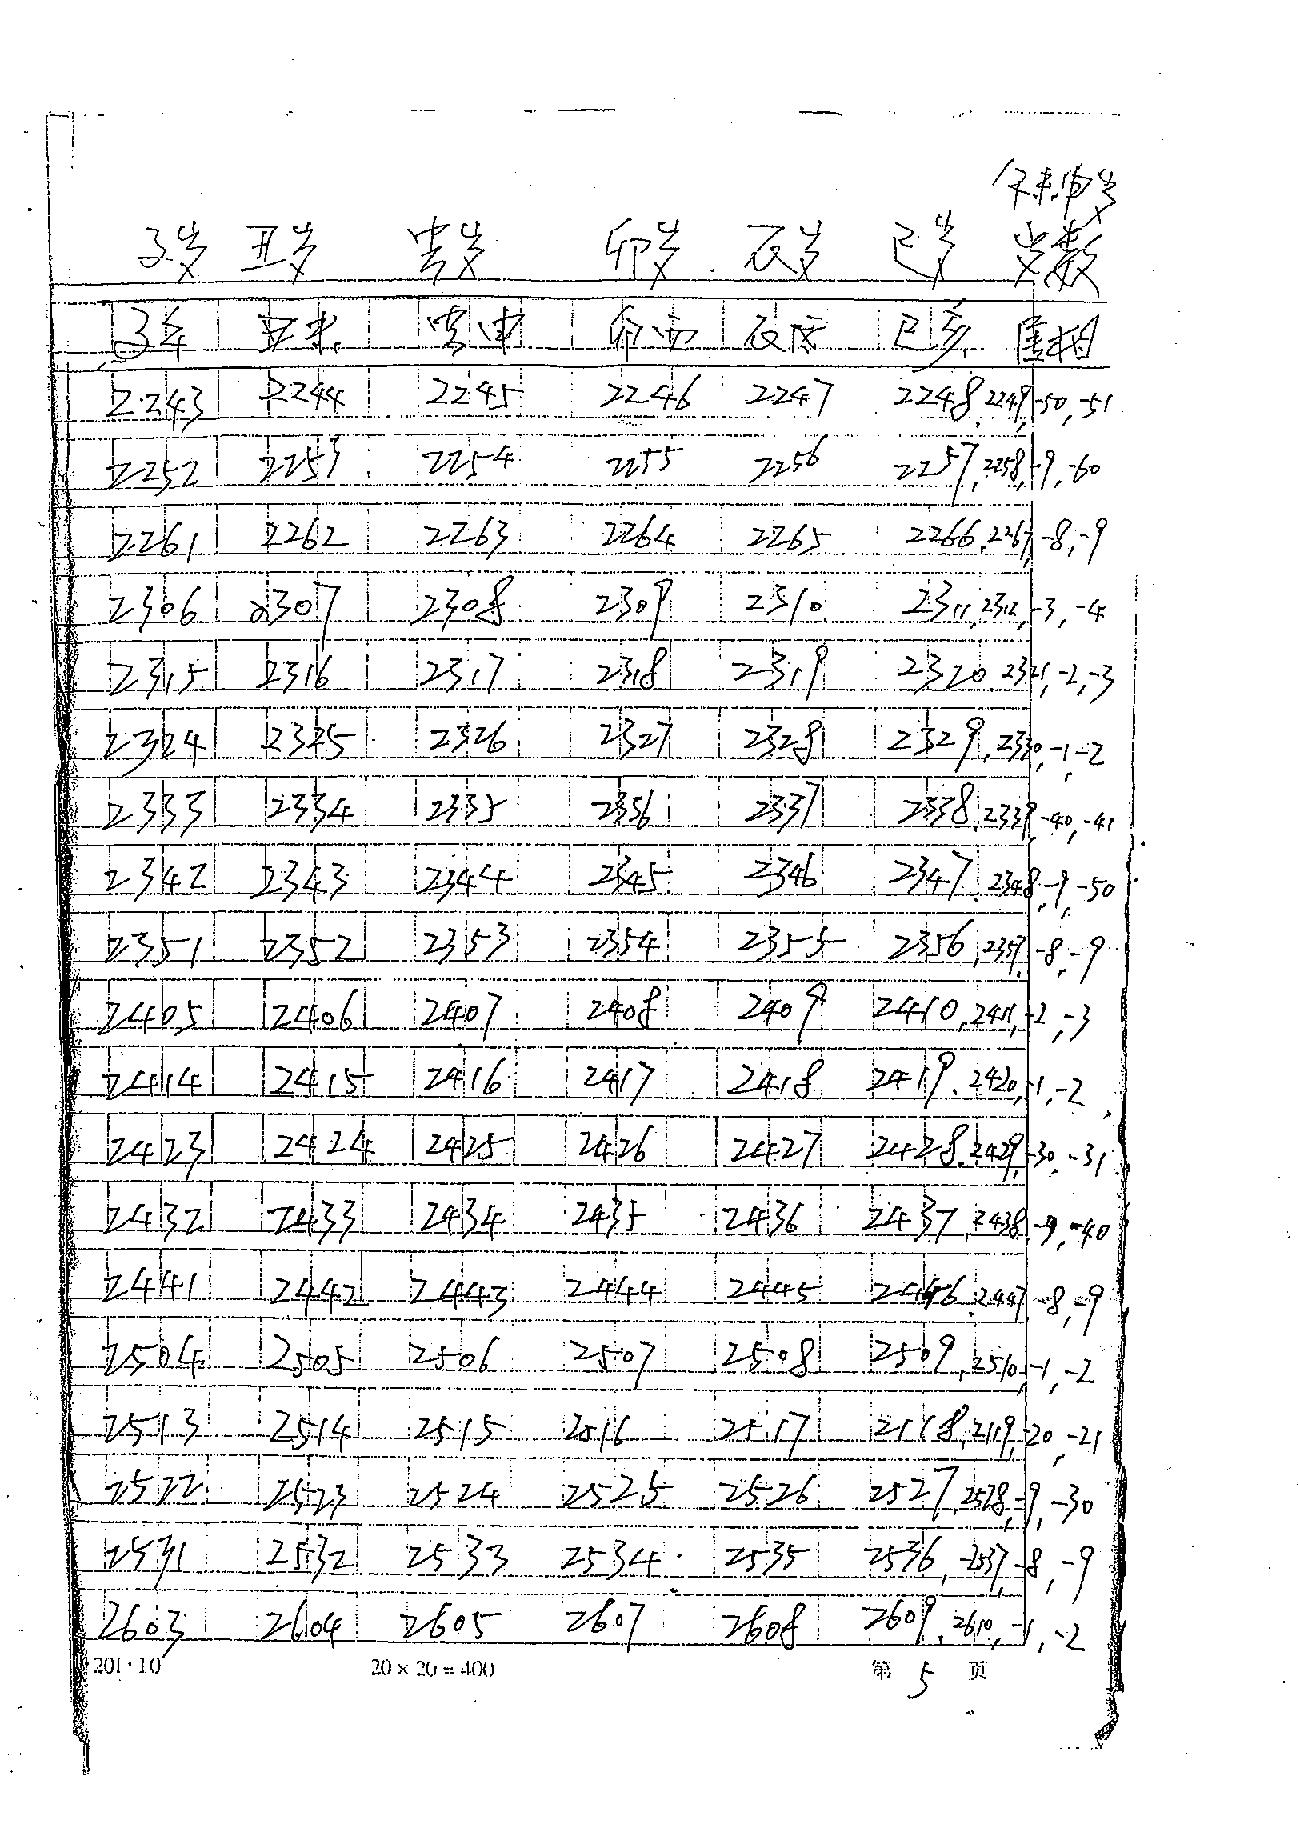 午.未.申岁
子岁 丑岁 寅岁 卯岁 辰岁 巳岁 岁数
子午 丑未 寅申 卯酉 辰戌 巳亥
2243 2244 2245 2246 2247 2248, 2249, -50, -51
2252 2253 2254 2255 2256 2257, 2258, -9, -60
2261 2262 2263 2264 2265 2266, 2267, -8, -9
2306 2307 2308 2309 2310 2311, 2312, -3, -4
2315 2316 2317 2318 2319 2320, 2321, -2, -3
2324 2325 2326 2327 2328 2329, 2330, -1, -2
2333 2334 2335 2336 2337 2338, 2339, -40, -41
2342 2343 2344 2345 2346 2347, 2348, -9, -50
2351 2352 2353 2354 2355 2356, 2357, -8, -9
2405 2406 2407 2408 2409 2410, 2411, -2, -3
2414 2415 2416 2417 2418 2419, 2420, -1, -2
2423 2424 2425 2426 2427 2428, 2429, -30, -31
2432 2433 2434 2435 2436 2437, 2438, -9, -40
2441 2442 2443 2444 2445 2446, 2447, -8, -9
2504 2505 2506 2507 2508 2509, 2510, -1, -2
2513 2514 2515 2516 2517 2118, 2119, -20, -21
2522 2523 2524 2525 2526 2527, 2528, -9, -30
2531 2532 2533 2534 2535 2536, -2537, -8, -9
2603 2604 2605 2607 2608 2609, 2610, -1, -2
201·10 20×20=400 第 5 页